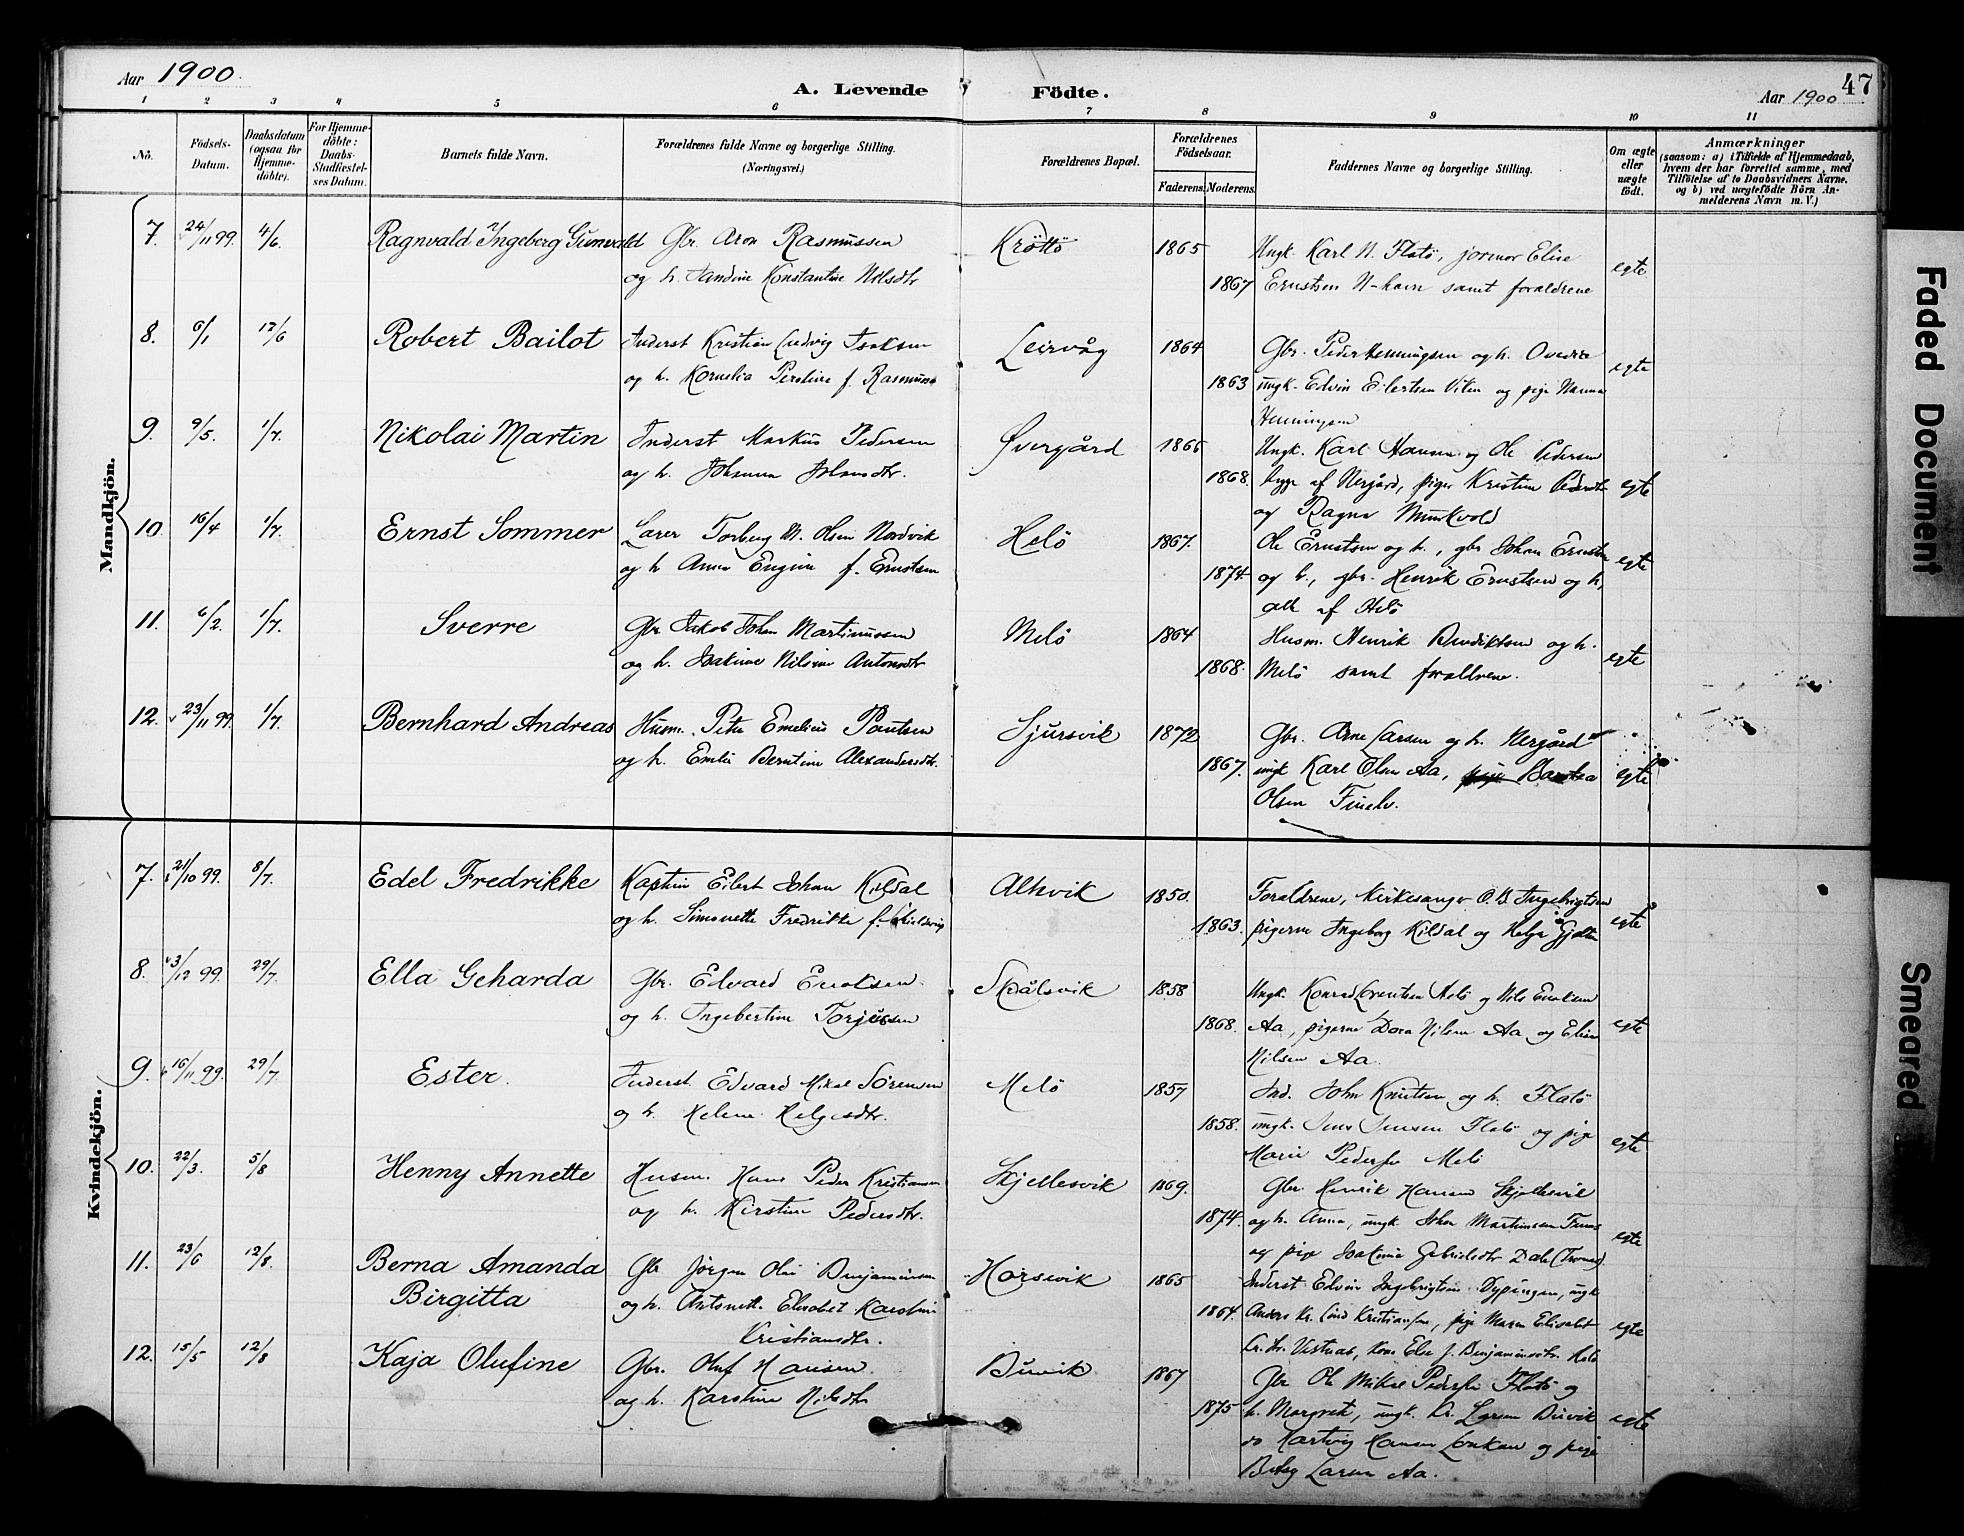 Aar 1900.
A. Levende Födte.
Aar 1900
47
1 2 3 4 5 6 7 8 9 10 11
No.
Födsels-Datum.
Daabsdatum (ogsaa for Hjemme-döbte).
For Hjemme-döbte: Daabs-Stadfæstel-ses Datum.
Barnets fulde Navn.
Forældrenes fulde Navne og borgerlige Stilling.
(Næringsvei.)
Forældrenes Bopæl.
Forældrenes Födselsaar.
Faderens. Moderens.
Faddernes Navne og borgerlige Stilling.
Om ægte eller uægte födt.
Anmærkninger
(saasom: a) i Tilfælde af Hjemmedaab,
hvem der har forrettet samme, med
Tilföielse af to Daabsvidners Navne,
og b) ved uægtefödte Börn An-
melderens Navn m. V.)
Mandkjön.
7. 24/11 99. 4/6. Ragnvald Ingeberg Gunvald Gbr. Aron Rasmussen Kröttö 1865 Ungk. Karl N. Flatö, jormor Elise
og h. Sandine Konstantine Nilsdtr 1867 Ernstsen N-havn samt forældrene egte
8. 6/1 17/6 Robert Bailot Inderst Kristian Ludvig Isaksen Leirvåg 1864 Gbr. Peder Henningsen og h.
og h. Kornelia Perstine f. Rasmuss 1863 ungk. Edvin Eilertsen og pige Hanna egte
Henningsen
9. 9/5. 1/7. Nikolai Martin Inderst Markus Pedersen Övergård 1865 Ungk. Karl Hansen og Ole Pedersen
og h. Johanna Johansdtr. 1868. begge af Nergård, piger Kristine Pedersdtr egte
og Ragna Munkvold
10. 16/4 1/7. Ernst Sommer Lærer Torberg M. Olsen Nordvik Helö 1867. Ole Ernstsen og h., gbr Johan Ernstsen
og h Anna Eugine f. Ernstsen 1874. og h., gbr. Henrik Ernstsen og h, egte
alle af Helö
11. 6/2. 1/7. Sverre Gbr Jakob Johan Martinussen Melö 1864 Husm. Henrik Bendiktsen og h.
og h. Joakime Nilsine Antonsdtr 1868. Melö samt forældrene. egte
12. 23/11 99. 1/7. Bernhard Andreas Husm. Peter Emelius Paulsen Sjursvik 1872 Gbr. Arne Larsen og h. Nergård
og h. Emilie Berntine Alexandersdtr. 1867. ungk Karl Olsen Aa, pige egte
Olsen
Kvindekjön.
7. 21/10 99. 8/7. Edel Fredrikke Kaptein Eilert Johan Kildal Alhvik 1850. Forældrene, Kirkesanger O. B. Ingebrigtsen
og h. Simonette Fredrikke f. 1863. pigerne Ingeborg Kildal og Helga egte
8. 3/12 99. 29/7. Ella Geharda Gbr. Edvard Enoksen Skålsvik 1858 Ungk. Konrad Lorentsen Helö og Nils Enoksen
og h. Ingebertine Torjussen 1868. Aa, pigerne Dora Nilsen Aa og Elise egte
Nilsen Aa.
9. 16/11 99. 29/7. Ester. Inderst Edvard Mikal Sörensen Melö 1857 Ind. John Knutsen og h. Flatö
og h. Helene Helgesdtr. 1858. ungk. Jens Jensen Flatö og pige egte
Marie Pedersen Melö
10. 22/3. 5/8 Henny Annette Husm. Hans Peder Kristiansen Skjellesvik 1869. Gbr. Henrik Hansen Skjellesvik
og h. Kirstine Pedersdtr. 1874. og h. Anna, ungk. Johan Martinsen egte
og pige Joakime Gabrielsdtr Dale
11. 23/6 12/8. Berna Amanda Gbr Jörgen Olai Benjaminsen Horsvik 1865 Inderst Edvin Ingebrigtsen Dypingen, ungk
Birgitta og h. Antonette Elisabet Karoline 1864. Anders Kr. Lind Kristiansen, pige Maren Elisabet egte
Kristiansdtr. Kone Else f. Benjaminsdtr.
12. 15/5 12/8 Kaja Olufine Gbr. Oluf Hansen Buvik 1867 Gbr Ole Mikal Pedersen Flatö og
og h. Karoline Nilsdtr 1875 h. Margret, ungk. Larsen Buvik egte
do Hartvig Hansen og pige
Larsen Aa.
Faded Document
Smeared